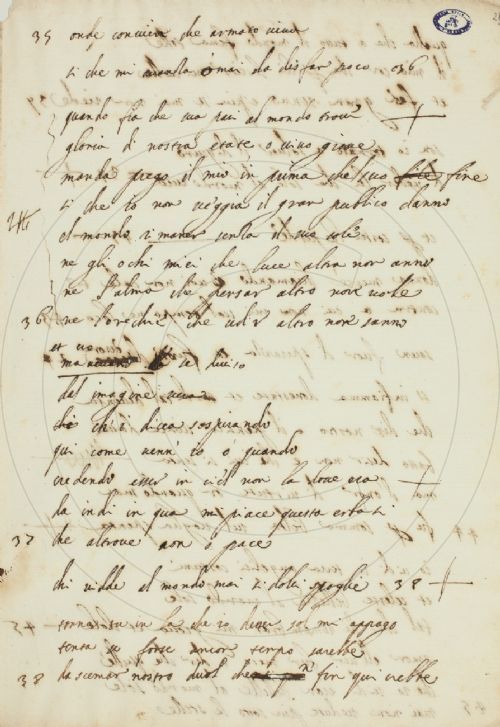 35 onde convien che armato viva
ti che mi avanza omai da disfar poco 036
quando fia che sua pari al mondo trovi +
gloria di nostra etate o vivo giove
manda prego il mio in prima che 'l suo fine
si che io non veggia il gran publico danno
el mondo rimaner senza il suo sole
ne gli ochi miei che luce altra non anno
ne l'alma che pensar altro non vole
36 ne l'orechie che udir altro non sanno
et
da se diviso
dal imagine vera
ch'i dicea sospirando
qui come venn' io o quando
credendo esser in ciel non la dove era +
da indi in qua mi piace questa erba si
37 che altrove non o pace
chi vidde al mondo mai si dolci spoglie 38 +
torna su in la che io d'esser sol mi appago
senza se forse ancor tempo sarebbe
38 da scemar nostro duol che fin qui crebbe